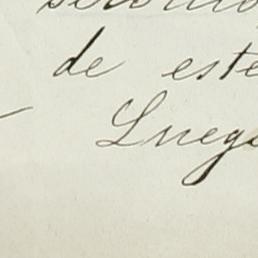 de este
Luego